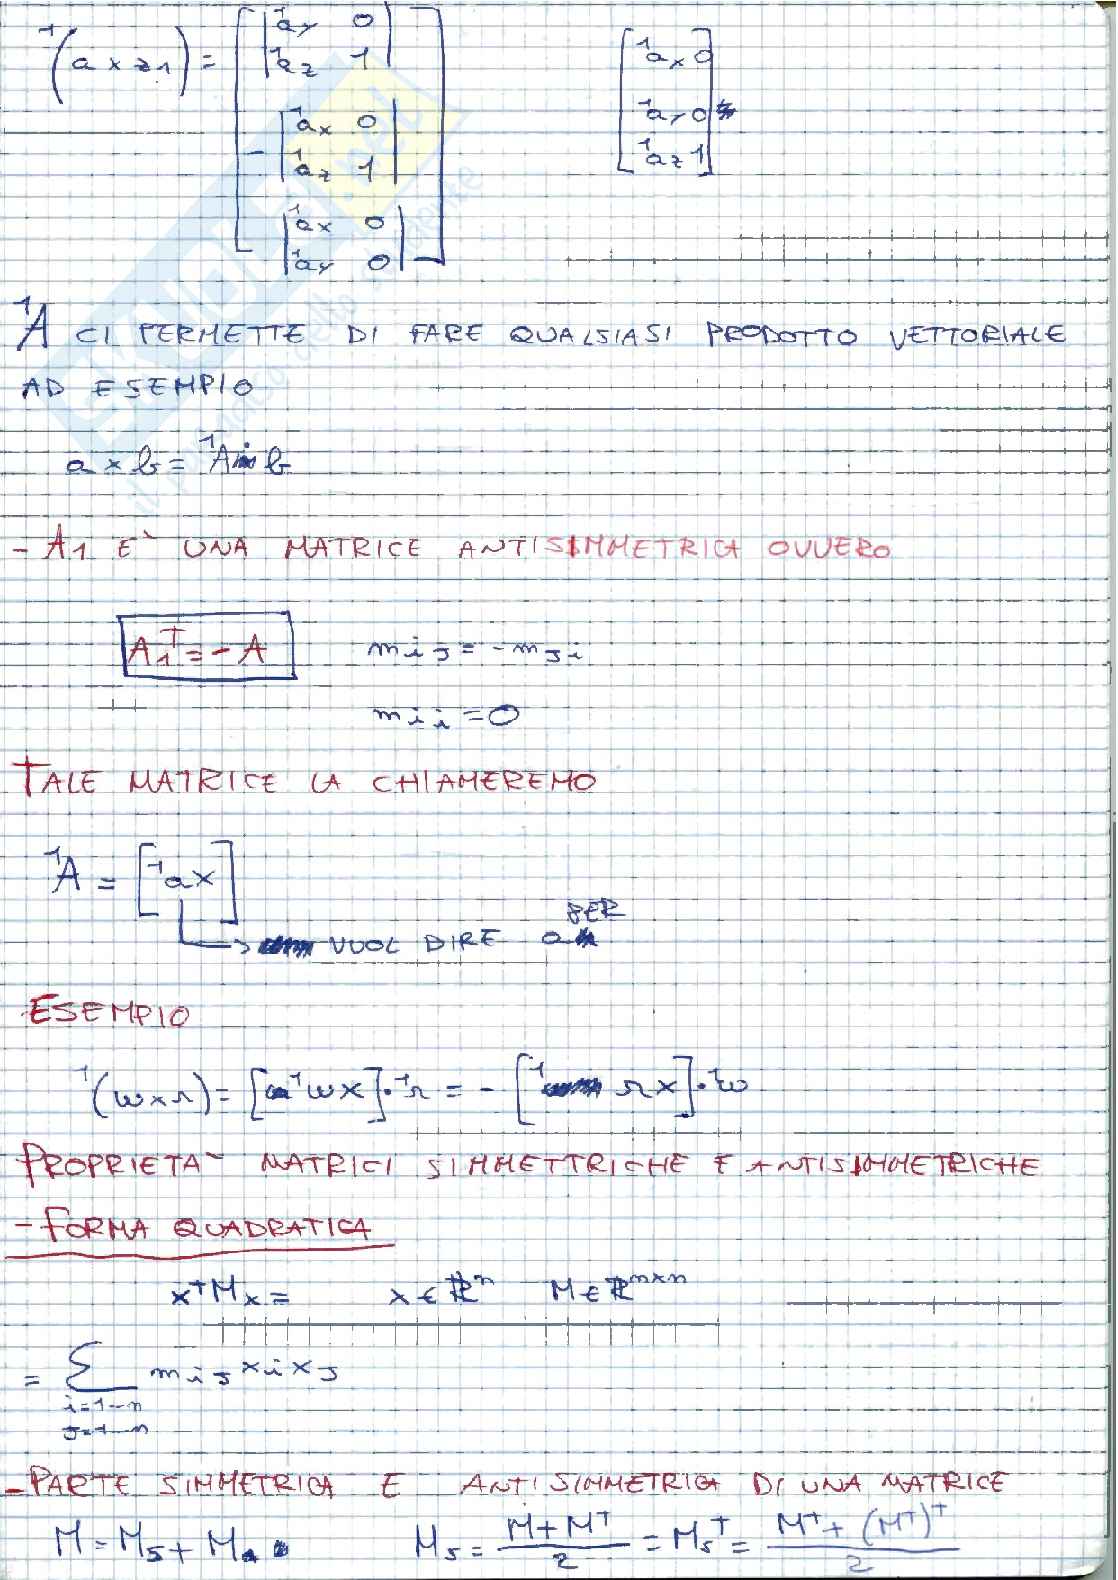 ¹(a × z1) = [ |¹ay 0| [ ¹ax 0
|¹az 1| ¹ay 0
- |¹ax 0| ¹az 1 ]
|¹az 1|
|¹ax 0|
|¹ay 0| ]
¹A CI PERMETTE DI FARE QUALSIASI PRODOTTO VETTORIALE
AD ESEMPIO
a × b = ¹A b
- A1 E` UNA MATRICE ANTISIMMETRICA OVVERO
A1ᵀ = - A mij = - mji
mii = 0
TALE MATRICE LA CHIAMEREMO
¹A = [¹a×]
→ VUOL DIRE a PER
ESEMPIO
¹(w × r) = [¹w×]·¹r = - [¹r×]·¹w
PROPRIETA` MATRICI SIMMETTRICHE E ANTISIMMETRICHE
- FORMA QUADRATICA
xᵀMx = x ∈ ℝⁿ M ∈ ℝⁿˣⁿ
= Σ mij xi xj
i=1-n
j=1-n
- PARTE SIMMETRICA E ANTISIMMETRICA DI UNA MATRICE
M = Ms + Ma Ms = (M + Mᵀ)/2 = Msᵀ = (Mᵀ + (Mᵀ)ᵀ)/2